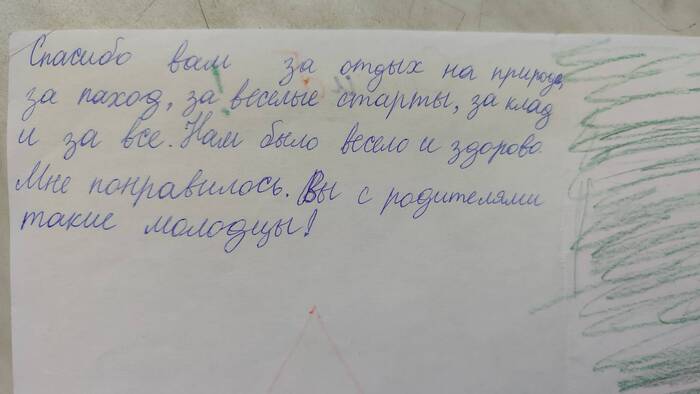 Спасибо вам за отдых на природе,
за паход, за веселые старты, за клад
и за все. Нам было весело и здорово.
Мне понравилось. Вы с родителями
такие молодцы!